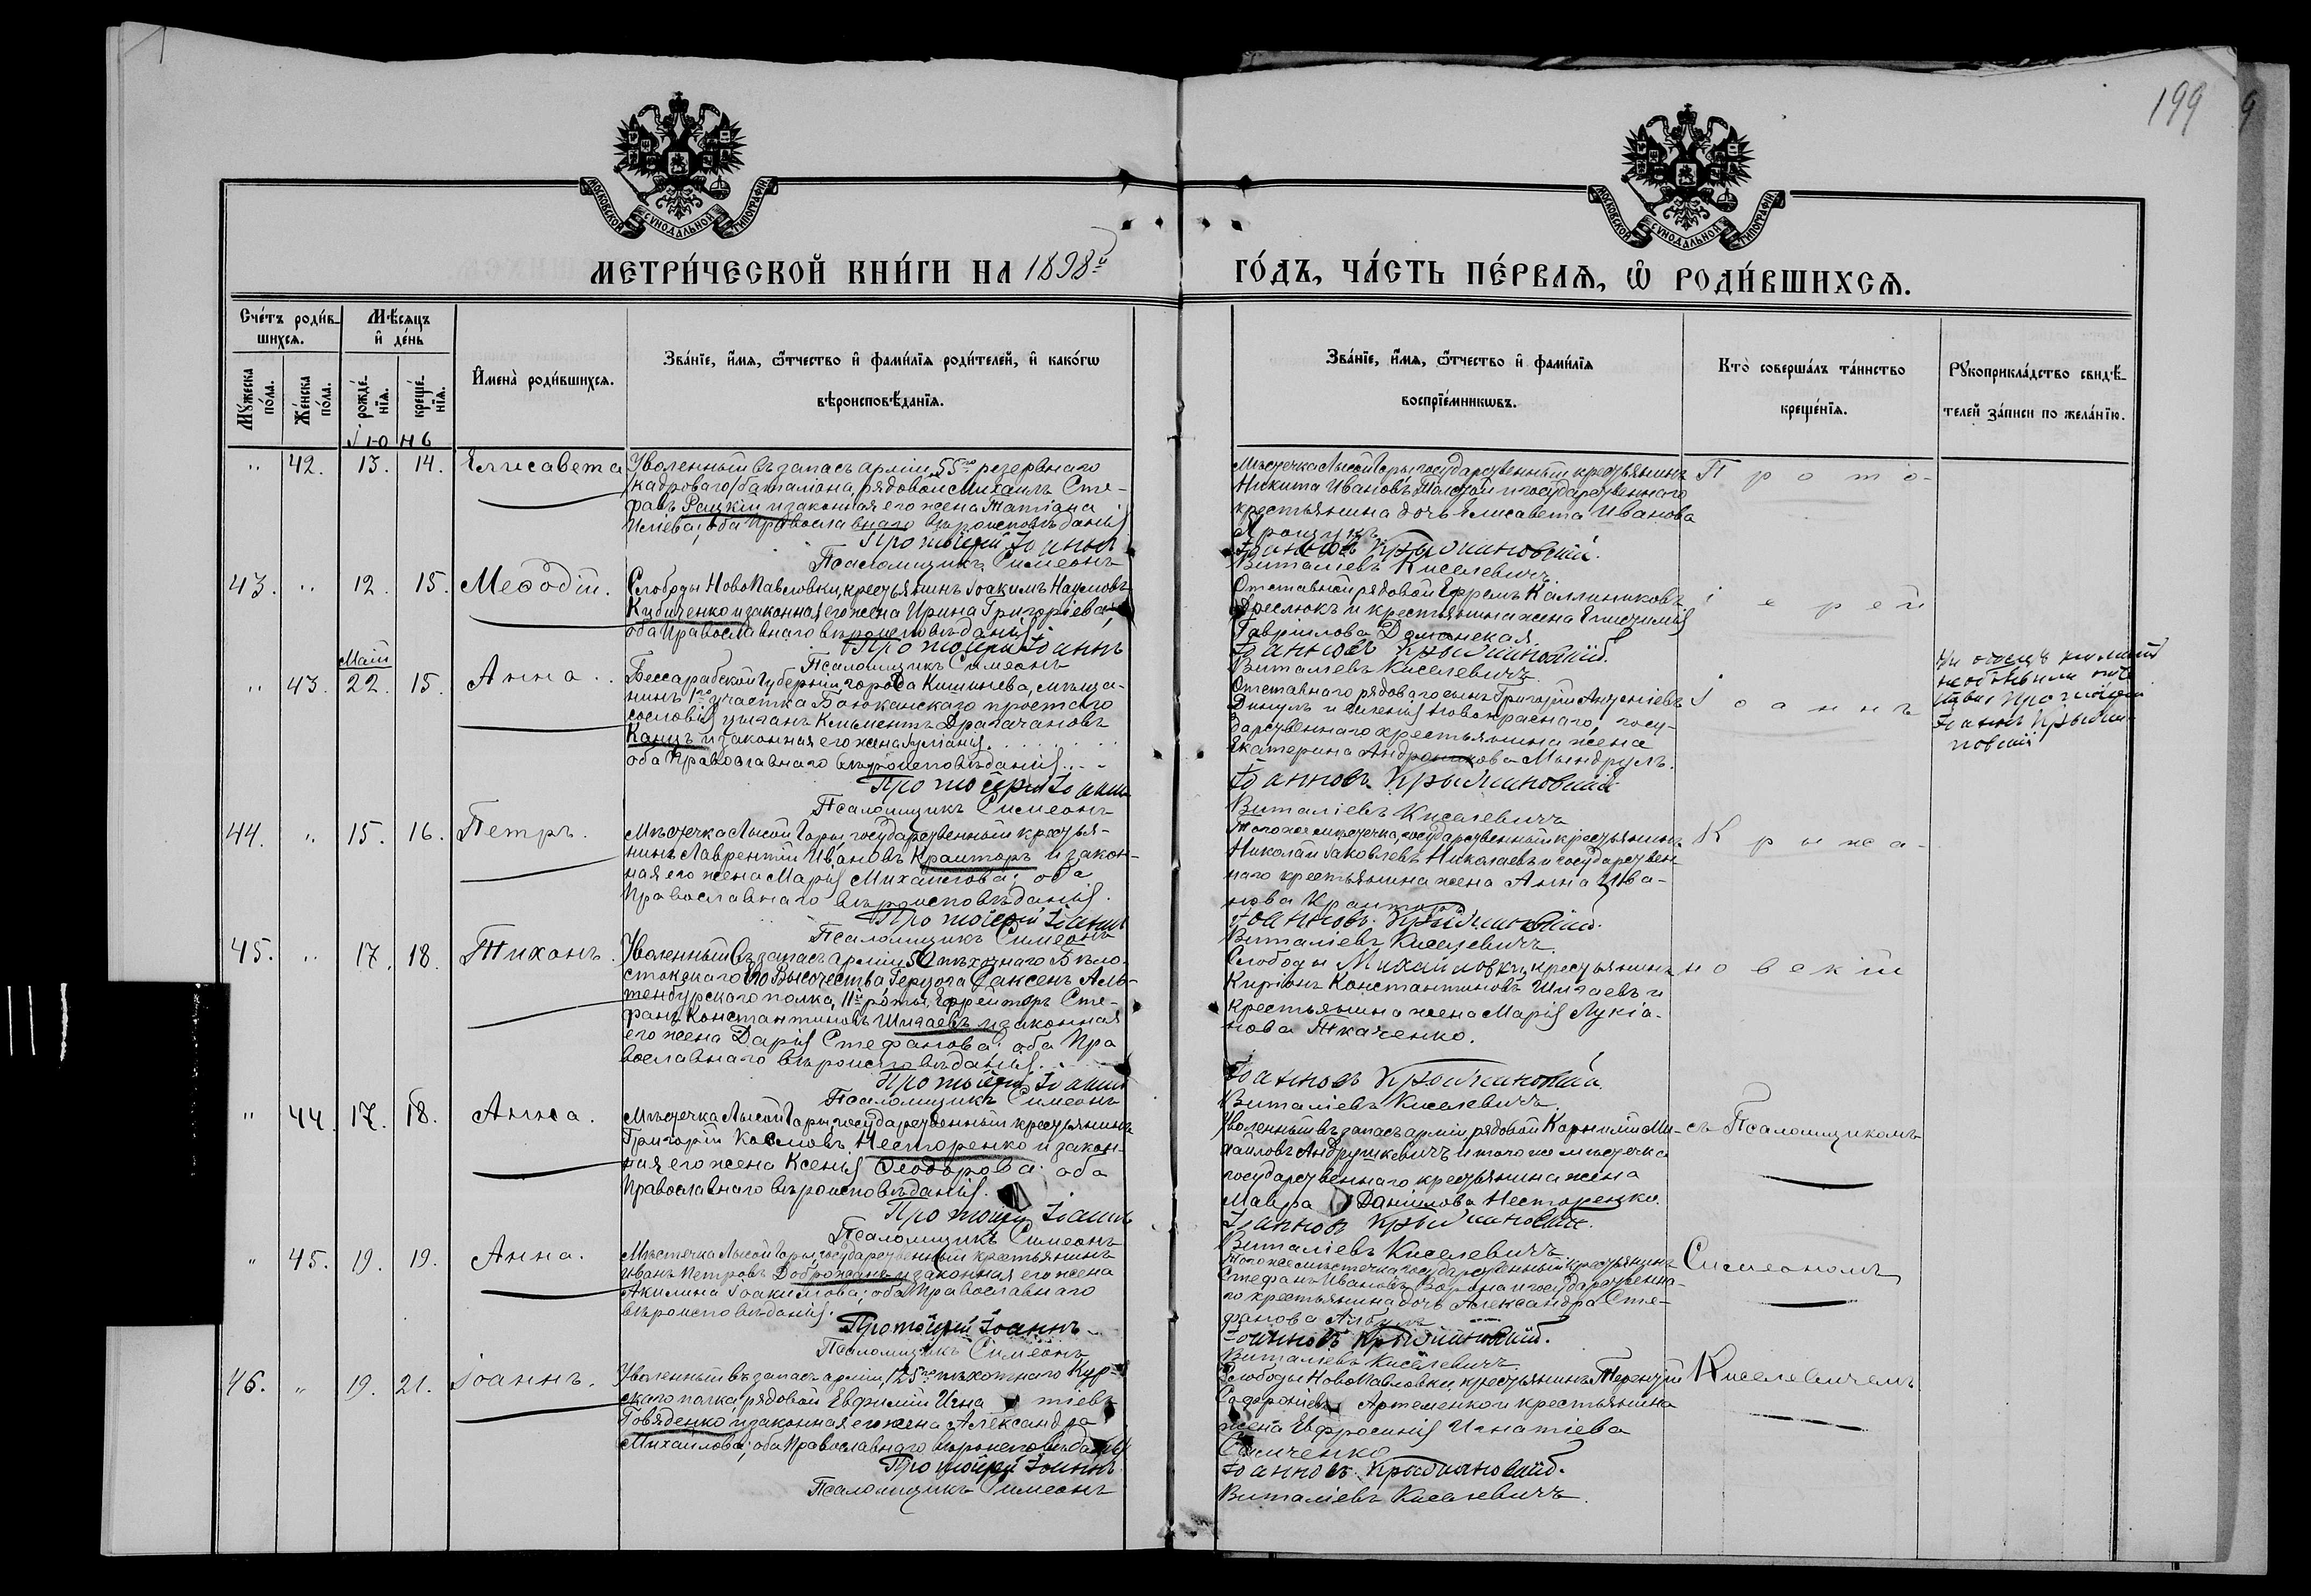 199
МОСКОВСКОЙ СѴНОДАЛЬНОЙ ТИПОГРАФІИ
МОСКОВСКОЙ СѴНОДАЛЬНОЙ ТИПОГРАФІИ
МЕТРИ́ЧЕСКОЙ КНИ́ГИ НА 1898й
ГО́ДЪ, ЧА́СТЬ ПЕ́РВАѦ, Ѡ҆ РОДИ́ВШИХСѦ.
Сче́тъ роди́в-
шихсѧ.
Мѣ́сѧцъ
и҆ де́нь
Мꙋ́жеска по́ла.
Же́нска по́ла.
рожде́-нїѧ.
креще́-нїѧ.
И҆мена̀ роди́вшихсѧ.
Зва́нїе, и҆́мѧ, ѻ҆́тчество и҆ фами́лїѧ роди́телей, и҆ како́гѡ
вѣроисповѣ́данїѧ.
Зва́нїе, и҆́мѧ, ѻ҆́тчество и҆ фами́лїѧ
воспрїе́мникѡвъ.
Кто̀ соверша́лъ та́инство
креще́нїѧ.
Рꙋкоприкла́дство свидѣ́-
телей за́писи по жела́нїю.
Іюнь
" 42. 13. 14. Елисавета
Уволенный въ запасъ арміи 55го резервнаго
/кадроваго/ баталіона, рядовой Михаилъ Сте-
фановъ Рацкій и законная его жена Татіана
Иліева; оба Православнаго вѣроисповѣданія
Протоіерей Іоаннъ
Псаломщикъ Симеонъ
Мѣстечка Лысой Горы, государственный крестьянинъ
Никита Ивановъ Толстой и государственнаго
крестьянина дочь Елисавета Иванова
Іоанновъ Крыжановскій.
Виталіевъ Киселевичъ.
Прото-
43. " 12. 15. Меѳодій.
Слободы НовоПавловки, крестьянинъ Іоакимъ Наумовъ
Кибиченко и законная его жена Ирина Григоріева;
оба Православнаго вѣроисповѣданія
Протоіерей Іоаннъ
Псаломщикъ Симеонъ
Отставной рядовой Ефремъ Каллиниковъ
и крестьянина жена
Гавріилова Доманская
Іоанновъ Крыжановскій.
Виталіевъ Киселевичъ.
іерей
Май
" 43. 22. 15. Анна.
Бессарабской Губерніи, города Кишинева, мѣща-
нинъ 1го участка Боюканскаго простаго
сословія цыганъ Климентъ Драгачановъ
Канцъ и законная его жена Іуліанія
оба Православнаго вѣроисповѣданія
Протоіерей Іоаннъ
Псаломщикъ Симеонъ
Отставнаго рядоваго сынъ Григорій
и селенія Новокраснаго, госу-
дарственнаго крестьянина жена
Екатерина Андроникова Мындруль.
Іоанновъ Крыжановскій
Виталіевъ Киселевичъ
Іоаннъ
Протоіерей
Іоаннъ Крыжа-
новскій
44. " 15. 16. Петръ.
Мѣстечка Лысой Горы, государственный крестья-
нинъ Лаврентій Ивановъ Крапторъ и закон-
ная его жена Марія Михаилова; оба
Православнаго вѣроисповѣданія.
Протоіерей Іоаннъ
Псаломщикъ Симеонъ
Того же мѣстечка, государственный крестьянинъ
Николай Іаковлевъ Николаевъ и государствен-
наго крестьянина жена Анна Ива-
нова
Іоанновъ Крыжановскій.
Виталіевъ Киселевичъ.
Крыжа-
45. " 17. 18. Тихонъ.
Уволенный въ запасъ арміи 50 пѣхотнаго Бѣло-
стокскаго Его Высочества Герцога Саксенъ Аль-
тенбургскаго полка, 11й роты, Ефрейторъ Сте-
фанъ Константиновъ Шигаевъ и законная
его жена Дарія Стефанова; оба Пра
вославнаго вѣроисповѣданія.
Протоіерей Іоаннъ
Псаломщикъ Симеонъ
Слободы Михайловки, крестьянинъ
Киріонъ Константиновъ Шигаевъ и
крестьянина жена Марія Лукіа-
нова Ткаченко.
Іоанновъ Крыжановскій
Виталіевъ Киселевичъ.
новскій
" 44. 17. 18. Анна.
Мѣстечка Лысой Горы, государственный крестьянинъ
Григорій Козмовъ Несторенко и закон-
ная его жена Ксенія Ѳеодорова; оба
Православнаго вѣроисповѣданія.
Протоіерей Іоаннъ
Псаломщикъ Симеонъ
Уволенный въ запасъ арміи, рядовой Корнилій Ми-
хайловъ Андрушкевичъ и того же мѣстечка
государственнаго крестьянина жена
Мавра Даніилова Несторенко.
Іоанновъ Крыжановскій.
Виталіевъ Киселевичъ
съ Псаломщикомъ
" 45. 19. 19. Анна.
Мѣстечка Лысой Горы, государственный крестьянинъ
Иванъ Петровъ Доброжанъ и законная его жена
Акилина Іоакимова; оба Православнаго
вѣроисповѣданія.
Протоіерей Іоаннъ
Псаломщикъ Симеонъ
Того же мѣстечка государственный крестьянинъ
Стефанъ Ивановъ Ворона и государственна-
го крестьянина дочь Александра Сте-
фанова
Іоанновъ Крыжановскій.
Виталіевъ Киселевичъ.
Симеономъ
46. " 19. 21. Іоаннъ.
Уволенный въ запасъ арміи, 125го пѣхотнаго Кур-
скаго полка, рядовой Евфимій Игна тіевъ
Говяденко и законная его жена Александра
Михайлова; оба Православнаго вѣроисповѣданія
Протоіерей Іоаннъ
Псаломщикъ Симеонъ
Слободы НовоПавловки, крестьянинъ Терентій
Софроніевъ Артеменко и крестьянина
жена Евфросинія Игнатіева
Іоанновъ Крыжановскій.
Виталіевъ Киселевичъ.
Киселевичемъ